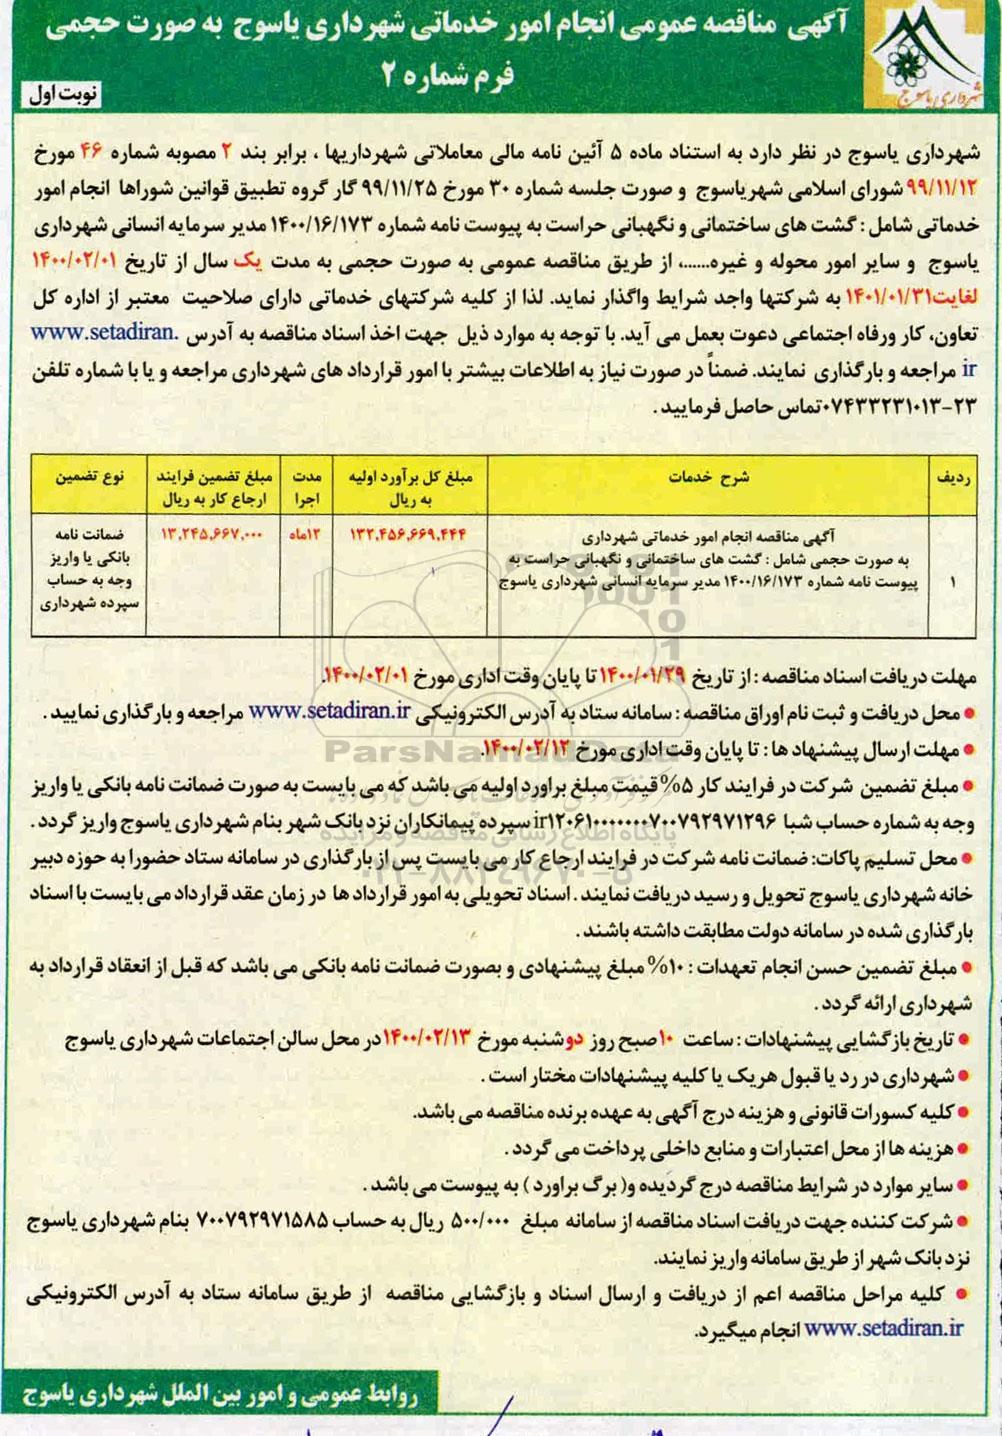 آگهی مناقصه عمومی انجام امور خدماتی شهرداری یاسوج به صورت حجمی
فرم شماره ۲
نوبت اول
شهرداری یاسوج
شهرداری یاسوج در نظر دارد به استناد ماده ۵ آئین نامه مالی معاملاتی شهرداریها ، برابر بند ۲ مصوبه شماره ۴۶ مورخ
۹۹/۱۱/۱۲ شورای اسلامی شهریاسوج و صورت جلسه شماره ۳۰ مورخ ۹۹/۱۱/۲۵ گار گروه تطبیق قوانین شوراها انجام امور
خدماتی شامل : گشت های ساختمانی و نگهبانی حراست به پیوست نامه شماره ۱۴۰۰/۱۶/۱۷۳ مدیر سرمایه انسانی شهرداری
یاسوج و سایر امور محوله و غیره......، از طریق مناقصه عمومی به صورت حجمی به مدت یک سال از تاریخ ۱۴۰۰/۰۲/۰۱
لغایت۱۴۰۱/۰۱/۳۱ به شرکتها واجد شرایط واگذار نماید. لذا از کلیه شرکتهای خدماتی دارای صلاحیت معتبر از اداره کل
تعاون، کار ورفاه اجتماعی دعوت بعمل می آید. با توجه به موارد ذیل جهت اخذ اسناد مناقصه به آدرس www.setadiran.
ir مراجعه و بارگذاری نمایند. ضمناً در صورت نیاز به اطلاعات بیشتر با امور قرارداد های شهرداری مراجعه و یا با شماره تلفن
۰۷۴۳۳۲۳۱۰۱۳-۲۳تماس حاصل فرمایید .
ردیف	شرح خدمات	مبلغ کل برآورد اولیه به ریال	مدت اجرا	مبلغ تضمین فرایند ارجاع کار به ریال	نوع تضمین
۱	آگهی مناقصه انجام امور خدماتی شهرداری	۱۳۲,۴۵۶,۶۶۹,۴۴۴	۱۲ماه	۱۳,۲۴۵,۶۶۷,۰۰۰	ضمانت نامه
به صورت حجمی شامل : گشت های ساختمانی و نگهبانی حراست به	بانکی یا واریز
پیوست نامه شماره ۱۴۰۰/۱۶/۱۷۳ مدیر سرمایه انسانی شهرداری یاسوج	وجه به حساب
سپرده شهرداری
مهلت دریافت اسناد مناقصه : از تاریخ ۱۴۰۰/۰۱/۲۹ تا پایان وقت اداری مورخ ۱۴۰۰/۰۲/۰۱.
• محل دریافت و ثبت نام اوراق مناقصه : سامانه ستاد به آدرس الکترونیکی www.setadiran.ir مراجعه و بارگذاری نمایید .
• مهلت ارسال پیشنهاد ها : تا پایان وقت اداری مورخ ۱۴۰۰/۰۲/۱۲.
ParsNamadData
• مبلغ تضمین شرکت در فرایند کار ۵%قیمت مبلغ براورد اولیه می باشد که می بایست به صورت ضمانت نامه بانکی یا واریز
وجه به شماره حساب شبا ir۱۲۰۶۱۰۰۰۰۰۰۰۷۰۰۷۹۲۹۷۱۲۹۶ سپرده پیمانکاران نزد بانک شهر بنام شهرداری یاسوج واریز گردد .
پایگاه اطلاع رسانی مناقصه و مزایده
• محل تسلیم پاکات: ضمانت نامه شرکت در فرایند ارجاع کار می بایست پس از بارگذاری در سامانه ستاد حضورا به حوزه دبیر
۰۲۱-۸۸۳۴۹۶۷۰-۵
خانه شهرداری یاسوج تحویل و رسید دریافت نمایند . اسناد تحویلی به امور قرارداد ها در زمان عقد قرارداد می بایست با اسناد
بارگذاری شده در سامانه دولت مطابقت داشته باشند .
• مبلغ تضمین حسن انجام تعهدات : ۱۰%مبلغ پیشنهادی و بصورت ضمانت نامه بانکی می باشد که قبل از انعقاد قرارداد به
شهرداری ارائه گردد .
• تاریخ بازگشایی پیشنهادات : ساعت ۱۰صبح روز دوشنبه مورخ ۱۴۰۰/۰۲/۱۳در محل سالن اجتماعات شهرداری یاسوج
• شهرداری در رد یا قبول هریک یا کلیه پیشنهادات مختار است .
• کلیه کسورات قانونی و هزینه درج آگهی به عهده برنده مناقصه می باشد.
• هزینه ها از محل اعتبارات و منابع داخلی پرداخت می گردد .
• سایر موارد در شرایط مناقصه درج گردیده و( برگ براورد ) به پیوست می باشد .
• شرکت کننده جهت دریافت اسناد مناقصه از سامانه مبلغ ۵۰۰/۰۰۰ ریال به حساب ۷۰۰۷۹۲۹۷۱۵۸۵ بنام شهرداری یاسوج
نزد بانک شهر از طریق سامانه واریز نمایند.
• کلیه مراحل مناقصه اعم از دریافت و ارسال اسناد و بازگشایی مناقصه از طریق سامانه ستاد به آدرس الکترونیکی
www.setadiran.ir انجام میگیرد.
روابط عمومی و امور بین الملل شهرداری یاسوج